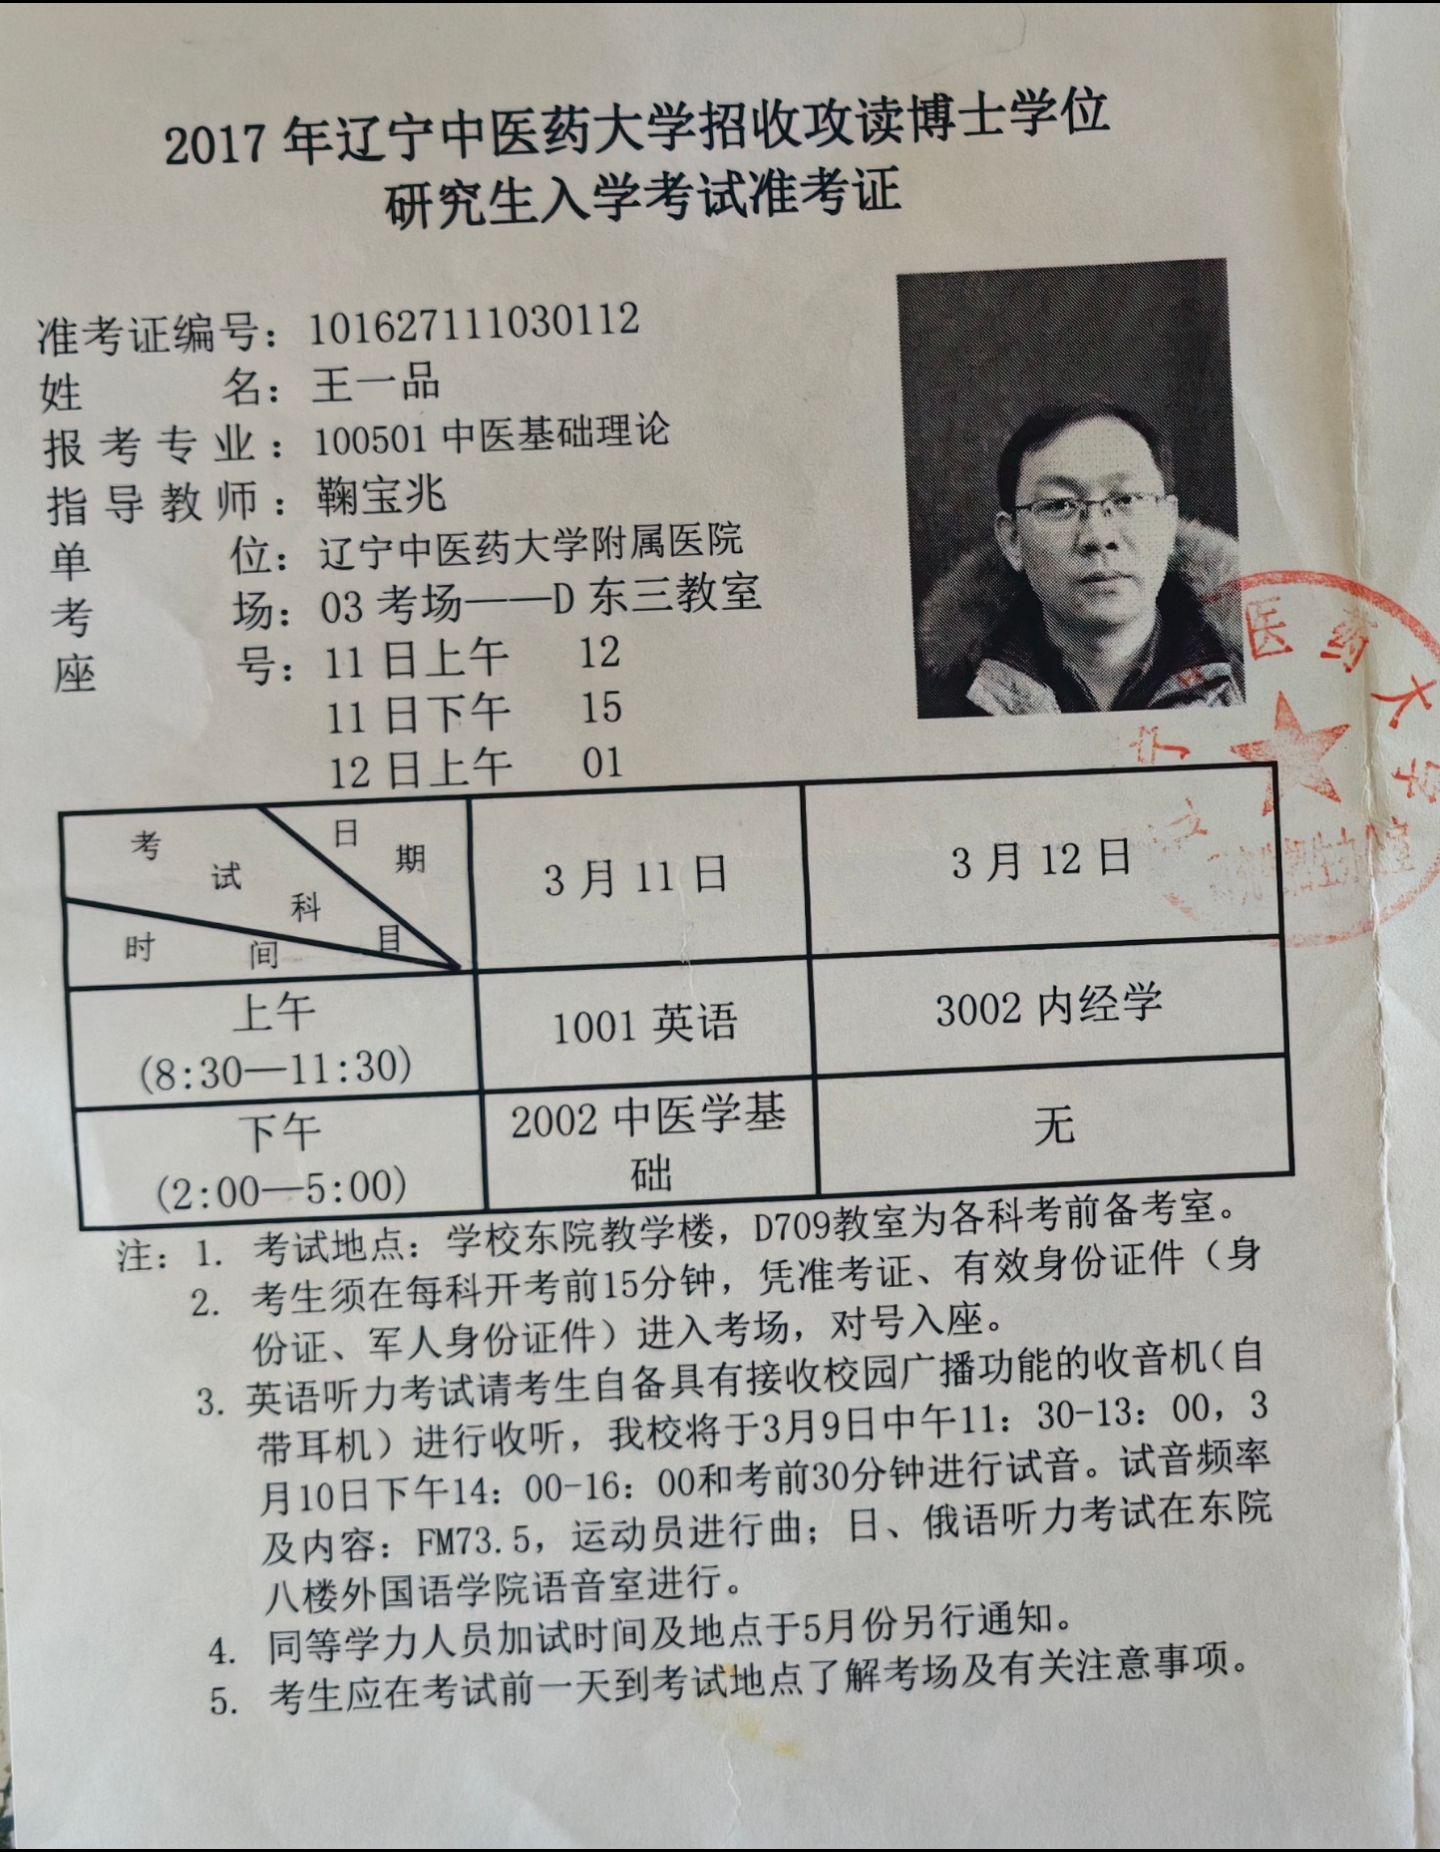 2017年辽宁中医药大学招收攻读博士学位
研究生入学考试准考证
准考证编号：101627111030112
姓名：王一品
报考专业：100501中医基础理论
指导教师：鞠宝兆
单位：辽宁中医药大学附属医院
考场：03考场——D东三教室
座号：11日上午 12
11日下午 15
12日上午 01
医药大学
考试科目 日期 时间
3月11日 3月12日
上午
(8:30—11:30) 1001英语 3002内经学
下午 2002中医学基
(2:00—5:00) 础 无
注：1. 考试地点：学校东院教学楼，D709教室为各科考前备考室。
2. 考生须在每科开考前15分钟，凭准考证、有效身份证件（身
份证、军人身份证件）进入考场，对号入座。
3. 英语听力考试请考生自备具有接收校园广播功能的收音机（自
带耳机）进行收听，我校将于3月9日中午11：30-13：00，3
月10日下午14：00-16：00和考前30分钟进行试音。试音频率
及内容：FM73.5，运动员进行曲；日、俄语听力考试在东院
八楼外国语学院语音室进行。
4. 同等学力人员加试时间及地点于5月份另行通知。
5. 考生应在考试前一天到考试地点了解考场及有关注意事项。